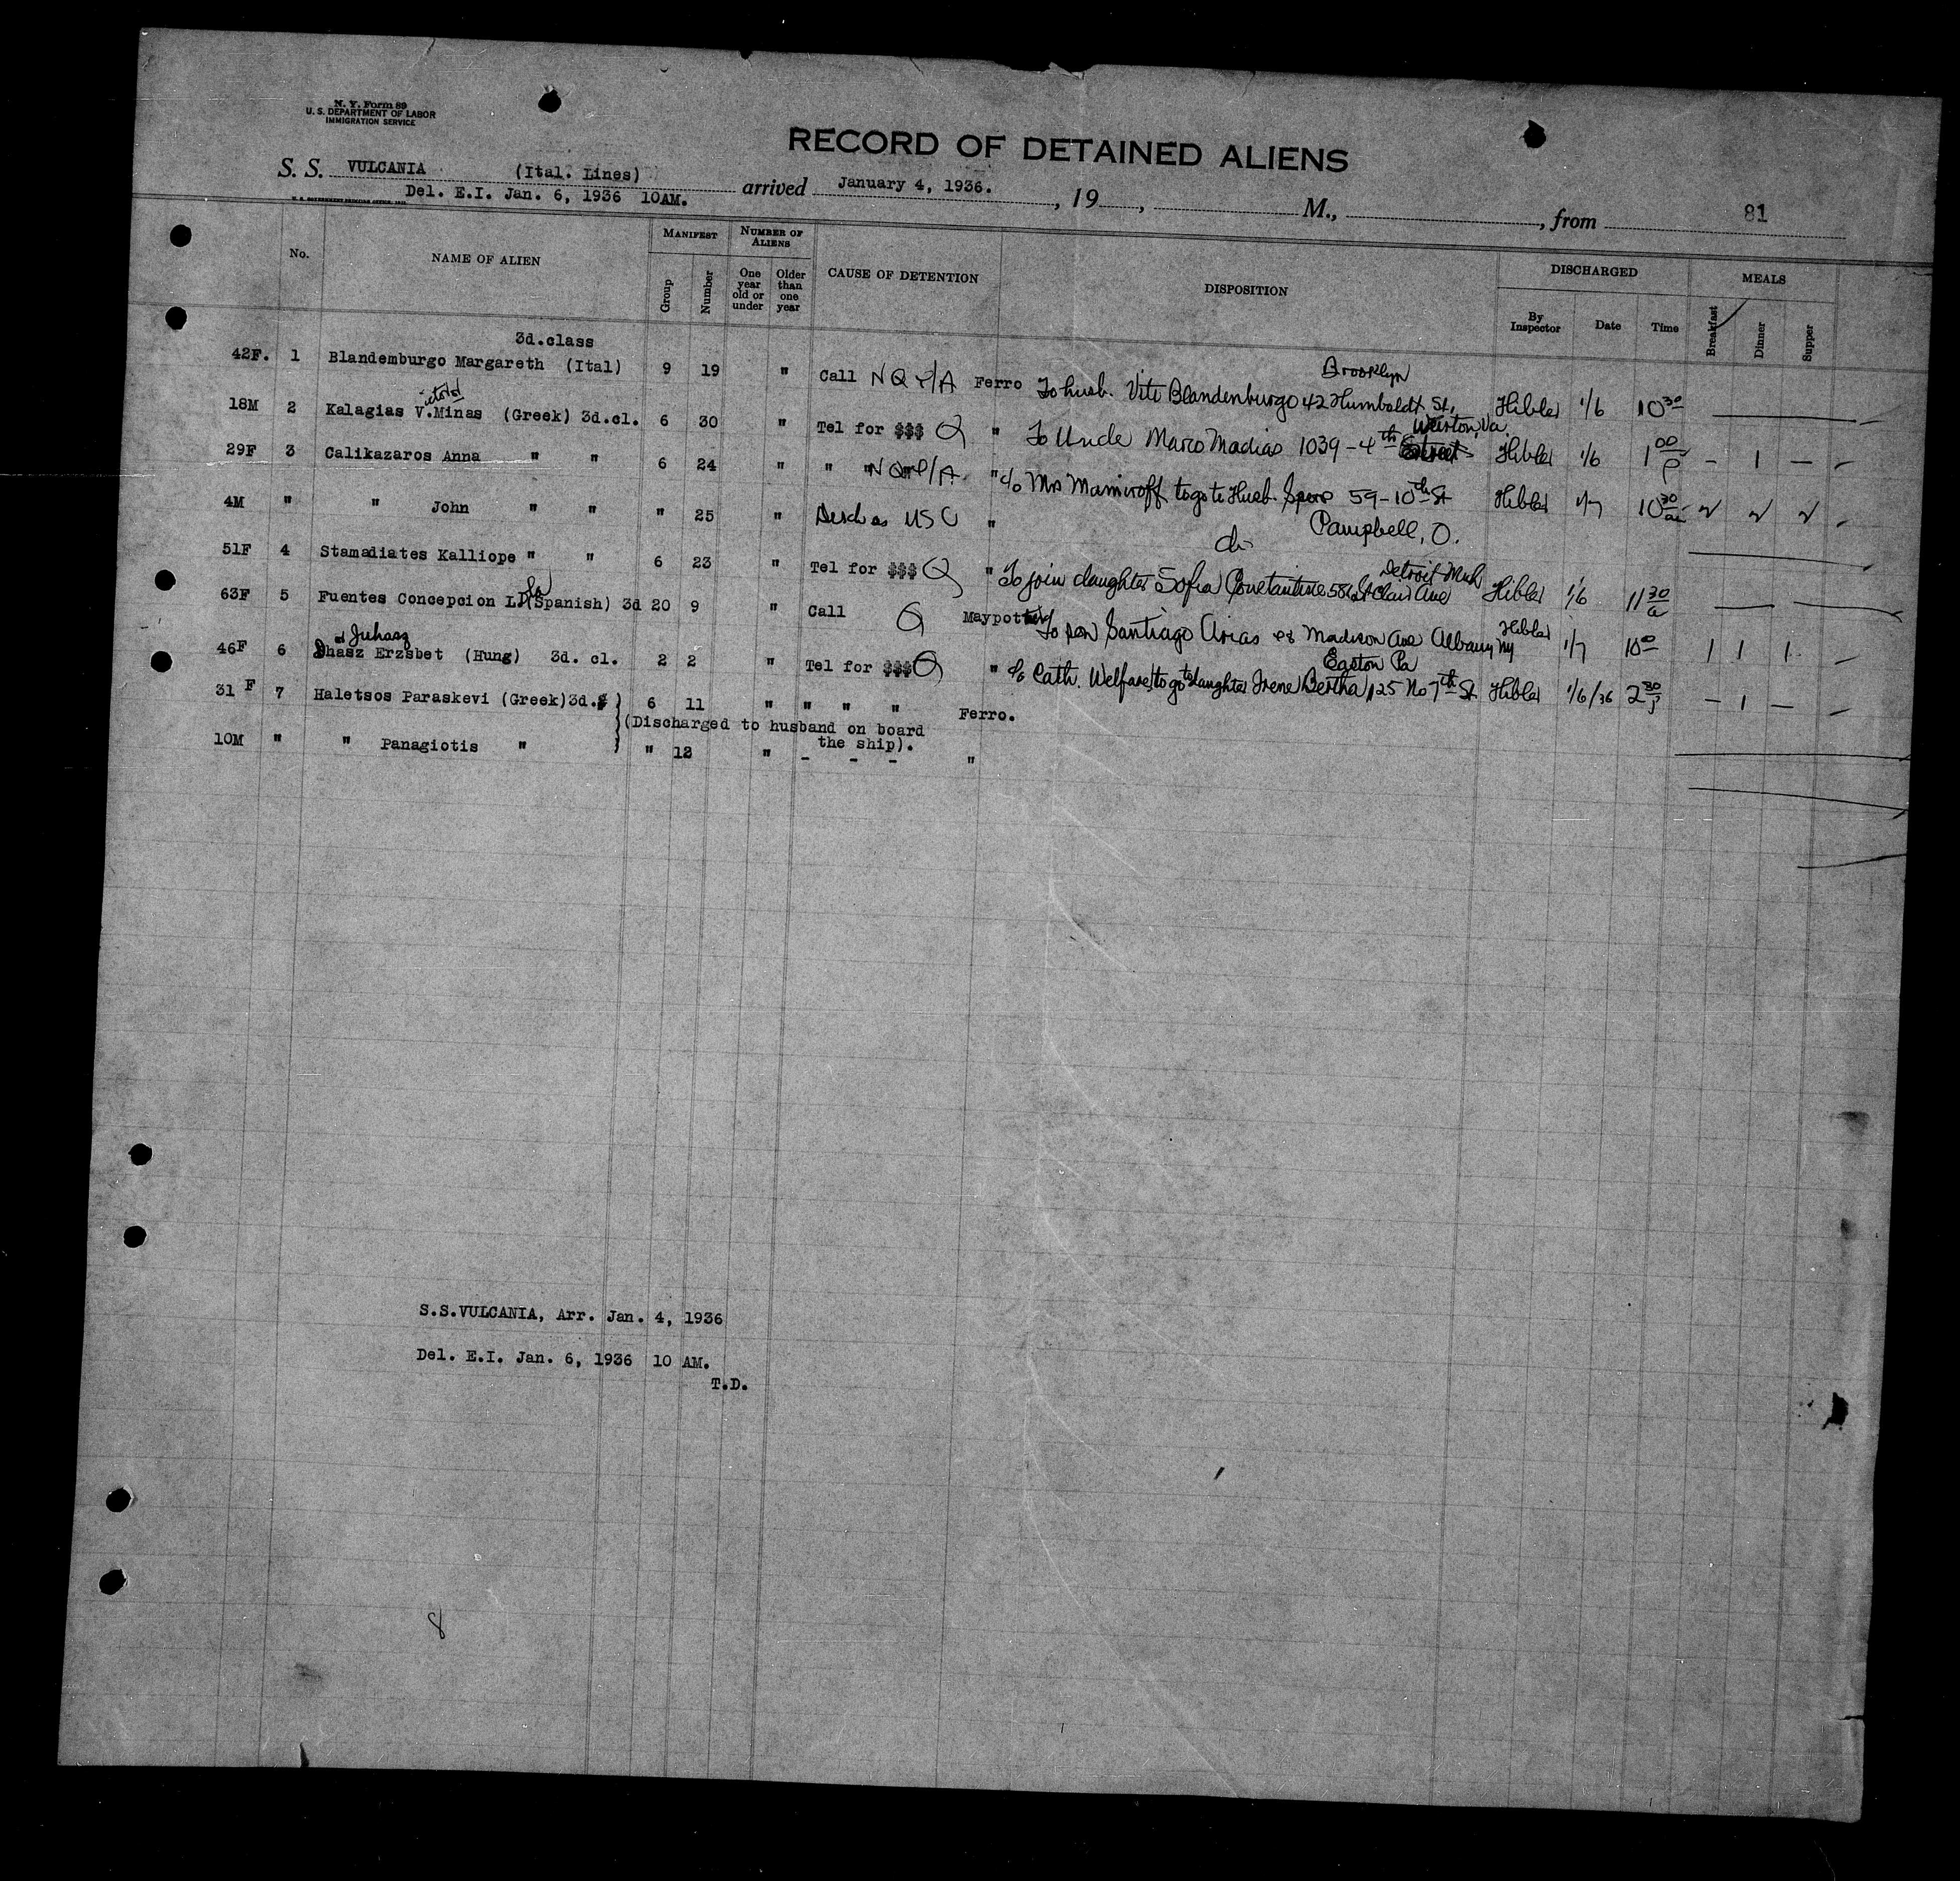 N. Y. Form 89
U. S. DEPARTMENT OF LABOR
IMMIGRATION SERVICE
RECORD OF DETAINED ALIENS
S. S. VULCANIA (Ital. Lines) arrived January 4, 1936. , 19 , M., , from 81
Del. E.I. Jan. 6, 1936 10AM.
No. NAME OF ALIEN MANIFEST Group Number NUMBER OF ALIENS One year old or under Older than one year CAUSE OF DETENTION DISPOSITION DISCHARGED By Inspector Date Time MEALS Breakfast Dinner Supper
3d.class
Brooklyn
42F. 1 Blandemburgo Margareth (Ital) 9 19 " Call N Q P/A Ferro To husb. Vito Blandenburgo 42 Humboldt St, Hibler 1/6 10 30
Weirton, Va
18M 2 Kalagias V.Minas (Greek) 3d.cl. 6 30 " Tel for $$$ Q " To Uncle Marco Madias 1039 - 4th Street Hibler 1/6 1 00 P - 1 -
29F 3 Calikazaros Anna " " 6 24 " " " N Q P/A " c/o Mrs to go to Husb. Spero 59-10th St Hibler 1/7 10 30
4M " " John " " " 25 " USC " Campbell, O.
51F 4 Stamadiates Kalliope " " 6 23 " Tel for $$$ Q " To join daughter Sofia Constantine St Clair Ave Detroit Mich Hibler 1/6 11 30 a
63F 5 Fuentes Concepcion (Spanish) 3d 20 9 " Call Q To son Santiago Arias Madison Ave Albany NY Hibler 1/7 10 00 1 1 1
Juhasz
Easton Pa
46F 6 Dhasz Erzsbet (Hung) 3d. cl. 2 2 " Tel for $$$ Q " c/o Cath. Welfare to go to daughter Irene Bertha 125 No 7th St Hibler 1/6/36 2 30 P - 1 -
31 F 7 Haletsos Paraskevi (Greek)3d. 6 11 " " " " Ferro.
(Discharged to husband on board
the ship).
10M " " Panagiotis " " 12 " - - - "
S.S.VULCANIA, Arr. Jan. 4, 1936
Del. E.I. Jan. 6, 1936 10 AM.
T.D.
8